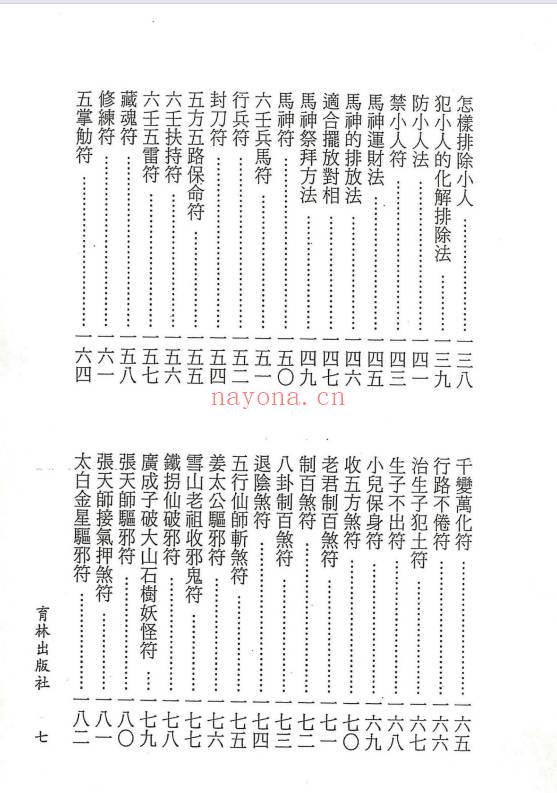 怎樣排除小人……………一三八
犯小人的化解排除法………一三九
防小人法……………一四一
禁小人符……………一四三
馬神運財法……………一四五
馬神的排放法……………一四六
適合擺放對相……………一四七
馬神祭拜方法……………一四九
馬神符……………一五〇
六壬兵馬符……………一五一
行兵符……………一五二
封刀符……………一五四
五方五路保命符……………一五五
六壬扶持符……………一五六
六壬五雷符……………一五七
藏魂符……………一五八
修練符……………一六一
五掌觔符……………一六四
nayona.cn
千變萬化符……………一六五
行路不倦符……………一六六
治生子犯土符……………一六七
生子不出符……………一六八
小兒保身符……………一六九
收五方煞符……………一七〇
老君制百煞符……………一七一
制百煞符……………一七二
八卦制百煞符……………一七三
退陰煞符……………一七四
五行仙師斬煞符……………一七五
姜太公驅邪符……………一七六
雪山老祖收邪鬼符…………一七七
鐵拐仙破邪符……………一七八
廣成子破大山石樹妖怪符…一七九
張天師驅邪符……………一八〇
張天師接氣押煞符…………一八一
太白金星驅邪符……………一八二
育林出版社 七